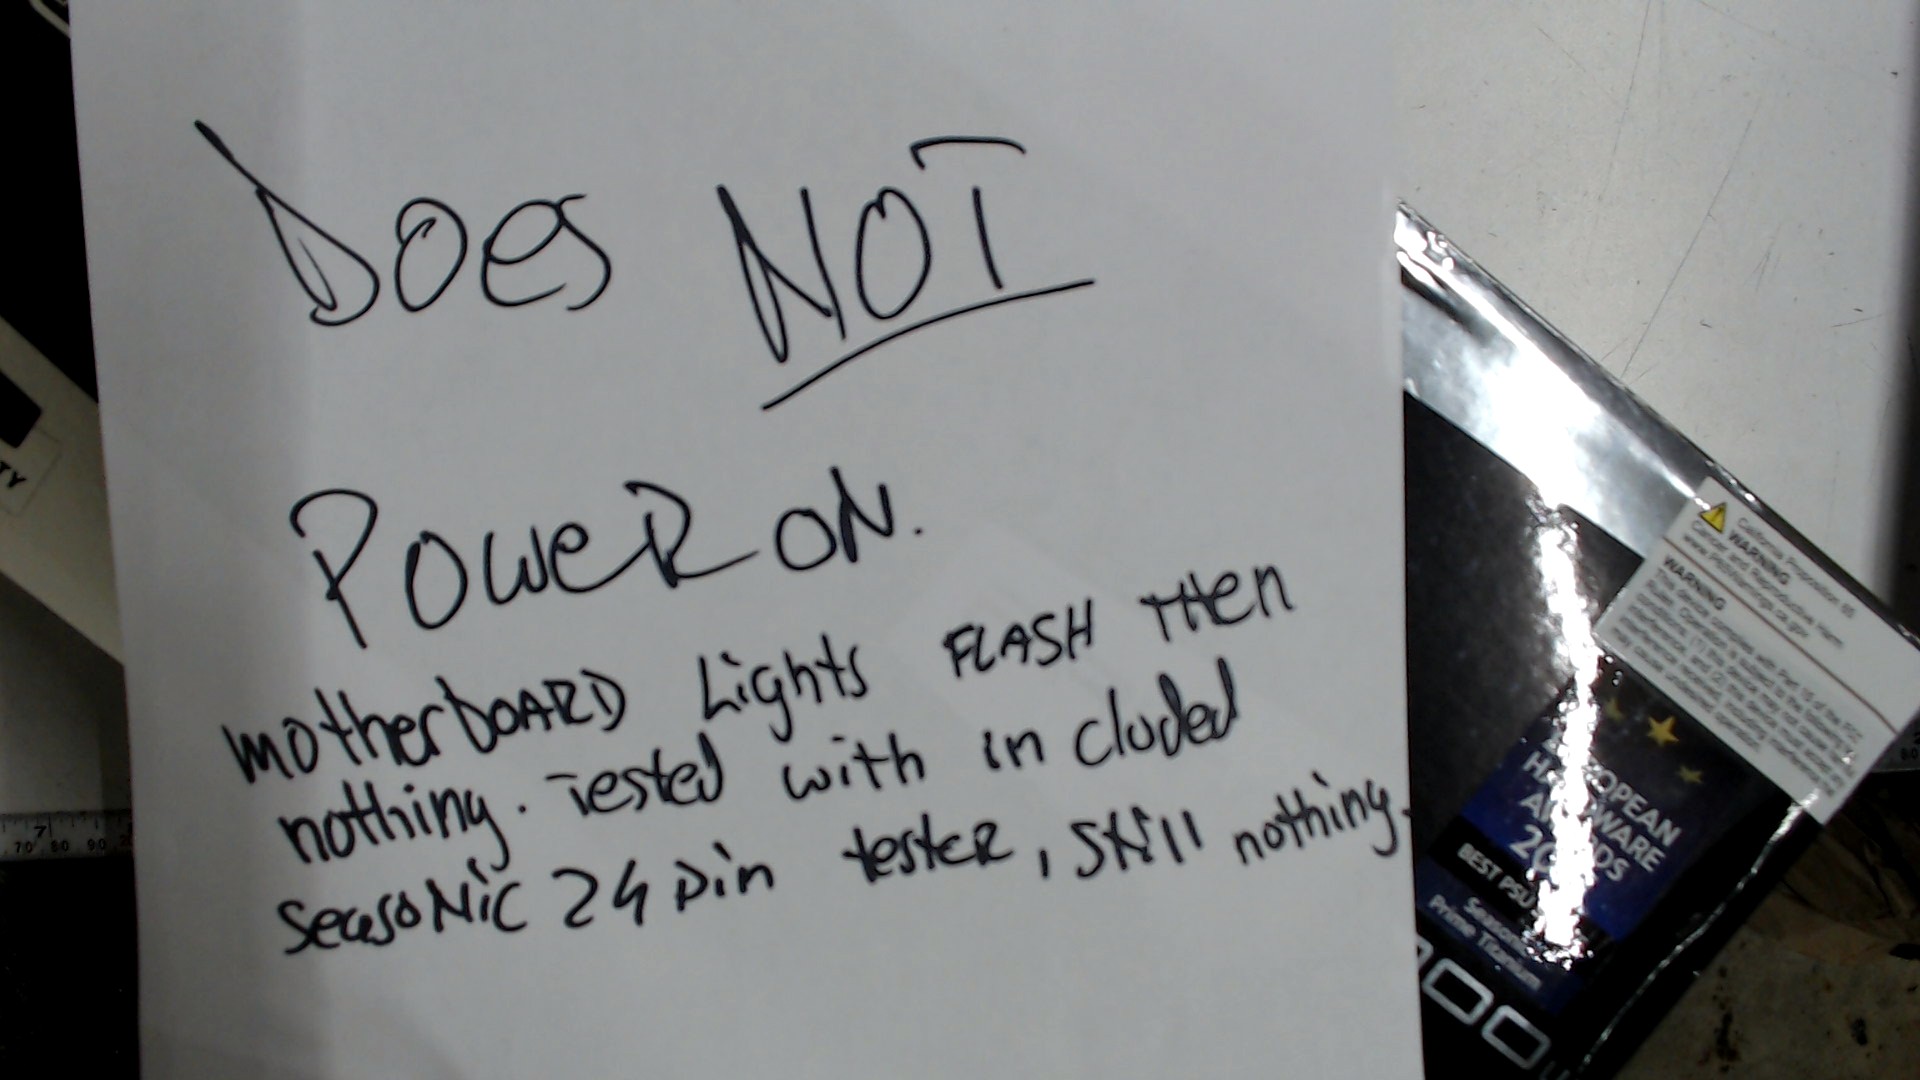 DOes NOT
POWeR ON.
motherboARD Lights FLASH THen
nothing. Tested with in cluded
seasoNic 24 pin tester, still nothing.
TY
7
70 80 90
California Proposition 65
WARNING
Cancer and Reproductive Harm
www.p65Warnings.ca.gov
WARNING
EUROPEAN
HARDWARE
AWARDS
BEST PSU
Seasonic
Prime Titanium